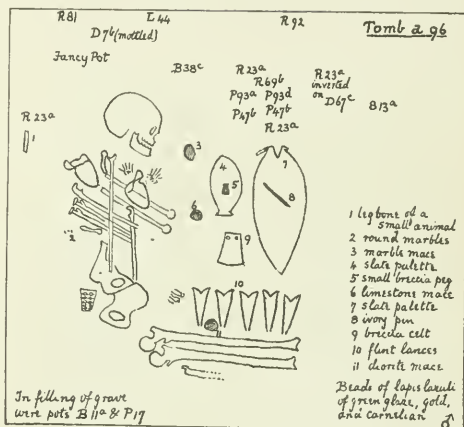 R 81
L 44
R 92
Tomb a 96
D 7b (mottled)
Fancy Pot
B 38c
R 23a
R 69b
P 93a P 93d
P 47b P 47b
R 23a
R 23a
inverted
on
D 67c
B 13a
R 23a
1
2
3
4
5
6
7
8
9
10
11
1 leg bone of a
small animal
2 round marbles
3 marble mace
4 slate palette
5 small breccia peg
6 limestone mace
7 slate palette
8 ivory pin
9 breccia celt
10 flint lances
11 diorite mace
Beads of lapis lazuli
of green glaze, gold,
and carnelian ♂
In filling of grave
were pots B 11a & P 17